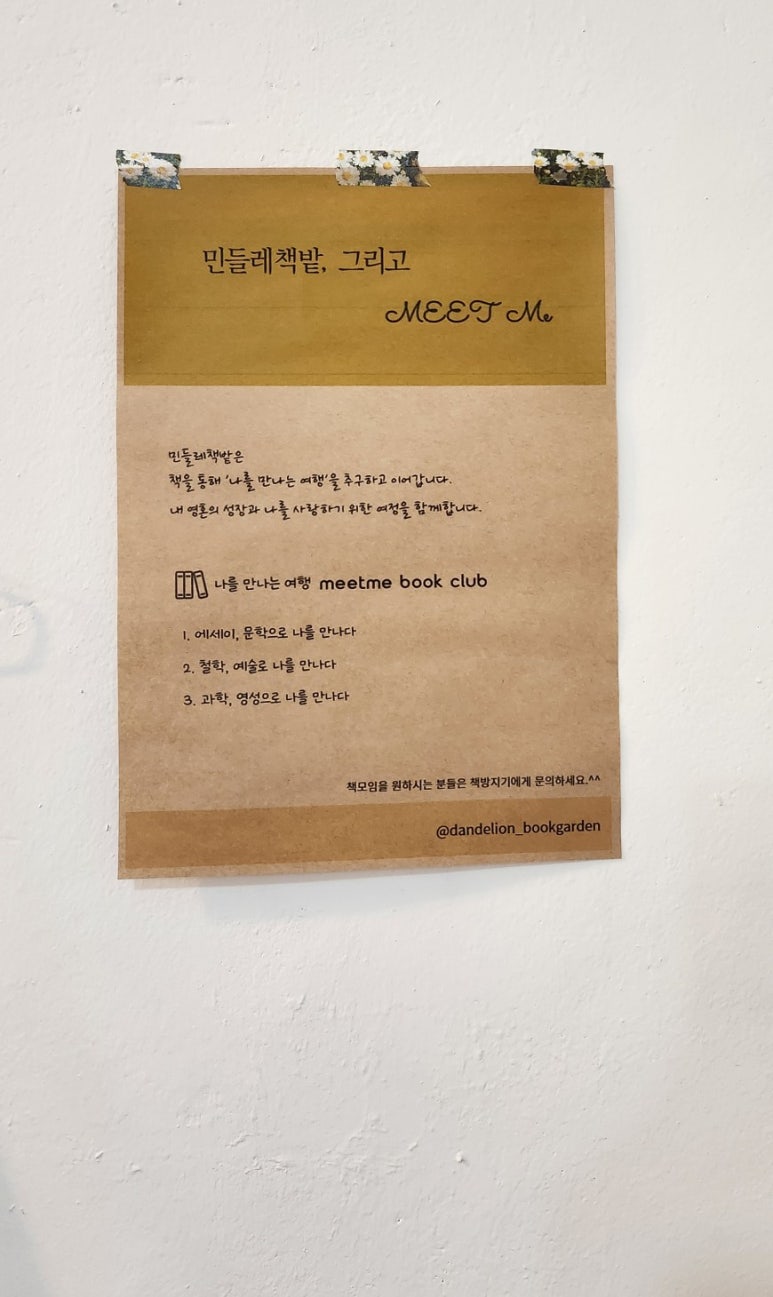 민들레책밭, 그리고
MEET Me
민들레책밭은
책을 통해 '나를 만나는 여행'을 추구하고 이어갑니다.
내 영혼의 성장과 나를 사랑하기 위한 여정을 함께합니다.
나를 만나는 여행 meetme book club
1. 에세이, 문학으로 나를 만나다
2. 철학, 예술로 나를 만나다
3. 과학, 영성으로 나를 만나다
책모임을 원하시는 분들은 책방지기에게 문의하세요.^^
@dandelion_bookgarden